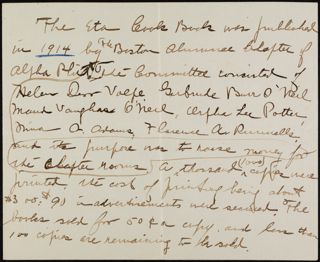 The Eta Cook Book was published
in 1914 by the Boston Alumnae Chapter of
Alpha Phi. The Committee consisted of
Helen Dorr Valpe Gertrude Burr O'Neil
Maud Vaughan O'Neil, Lee Potter,
A. Adams, Florence A.
and its purpose was to raise money for
the Chapter rooms. A thousand (1000) copies were
printed, the cost of printing being about
$3 00. $90 in advertisements were secured. The
books sold for 50¢ a copy, and less than
100 copies are remaining to be sold.